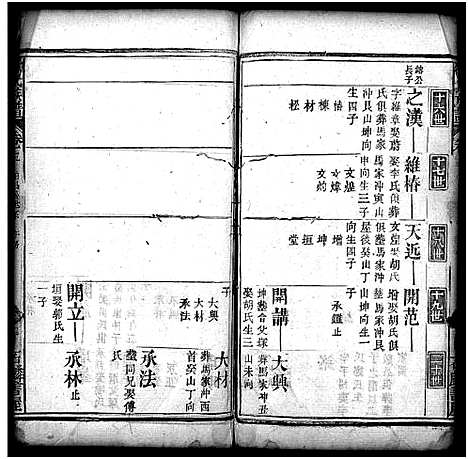 十六世
十七世
十八世
十九世
二十世
長子
之漢
字維章娶蔣
氏俱葬馬家
冲艮山坤向
生四子
椿
棟
材
松
維椿
娶李氏俱葬
馬家冲寅山
申向生三子
文煌
文煒
文灼
天远
文煌娶胡氏
俱塟馬家冲
屋後娶山丁
向生四子
增
坤
垣
堂
開范
增娶胡氏俱
塟馬家冲艮
山坤向生一
子
承鎧止
開講
坤塟合父塚
娶胡氏生三
子
大興
大材
承法
大興
葬馬家冲丑
山未向
大材
葬馬家冲西
首娶山丁向
承法
塟同兄娶傅
氏
開立
垣娶郭氏生
一子
承林止